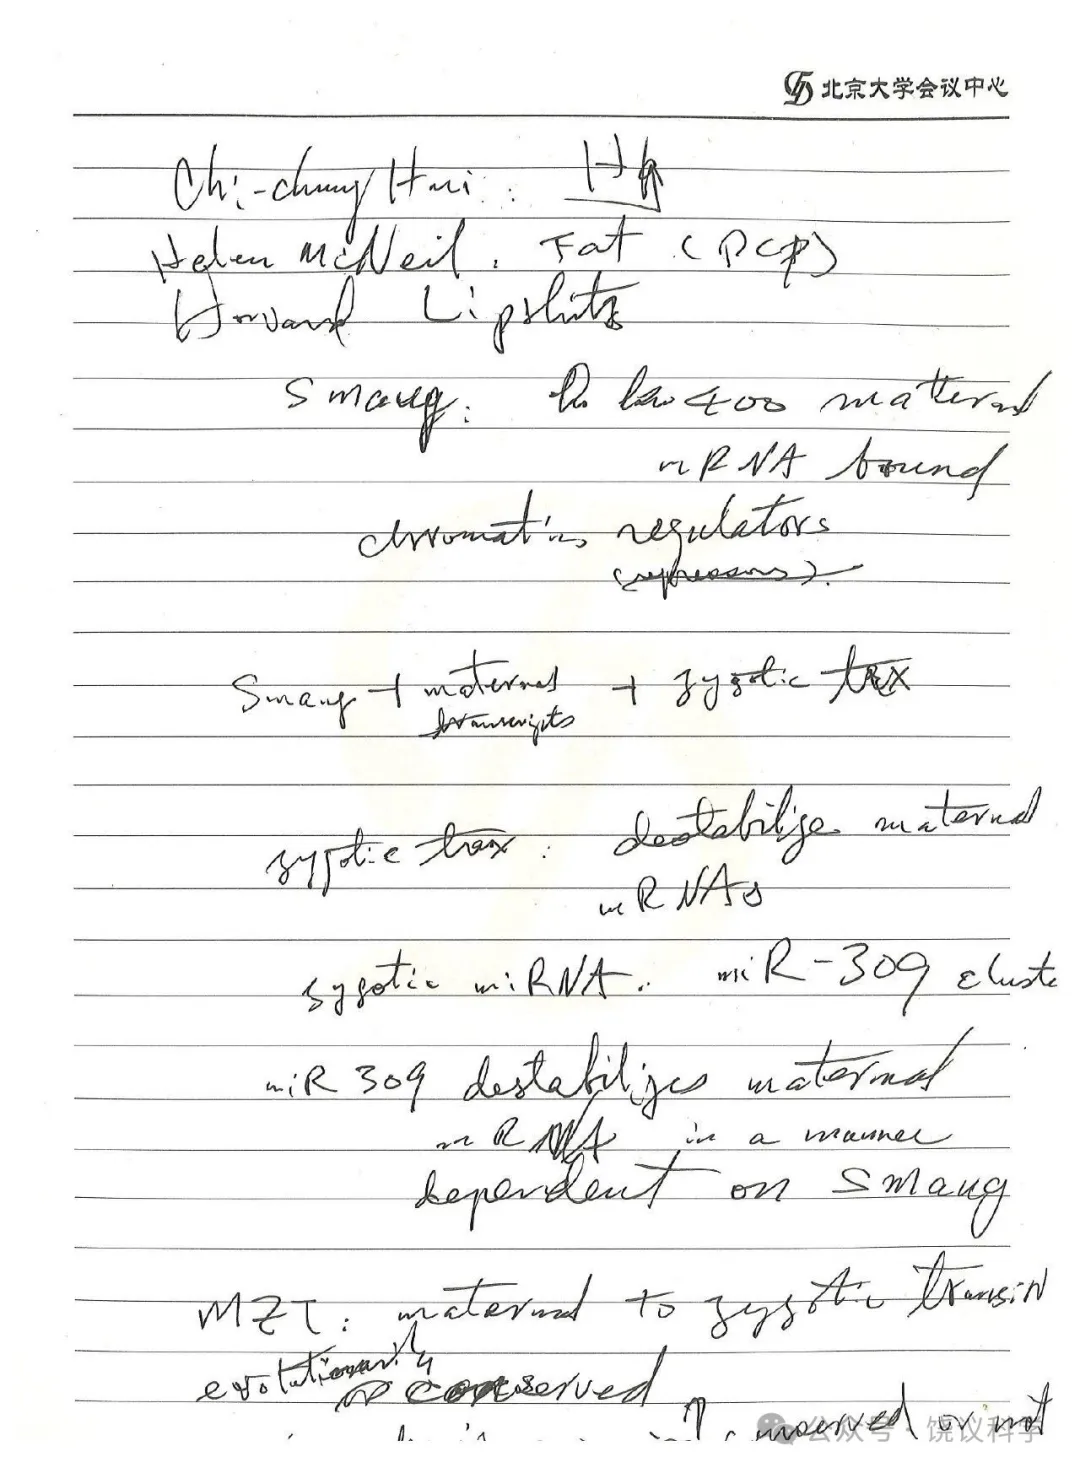 北京大学会议中心
Chi-chung Hui: Hh
Helen McNeil. Fat (PCP)
Howard Lipshitz
Smaug: 400 maternal
mRNA bound
chromatin regulators
(repressors).
Smaug + maternal + zygotic trx
transcripts
zygotic trax: destabilize maternal
mRNAs
zygotic miRNA. miR-309 cluste
miR 309 destabilizes maternal
mRNA in a manner
dependent on Smaug
MZT: maternal to zygotic transit
evolutionarily
conserved
conserved or not
公众号·饶议科学